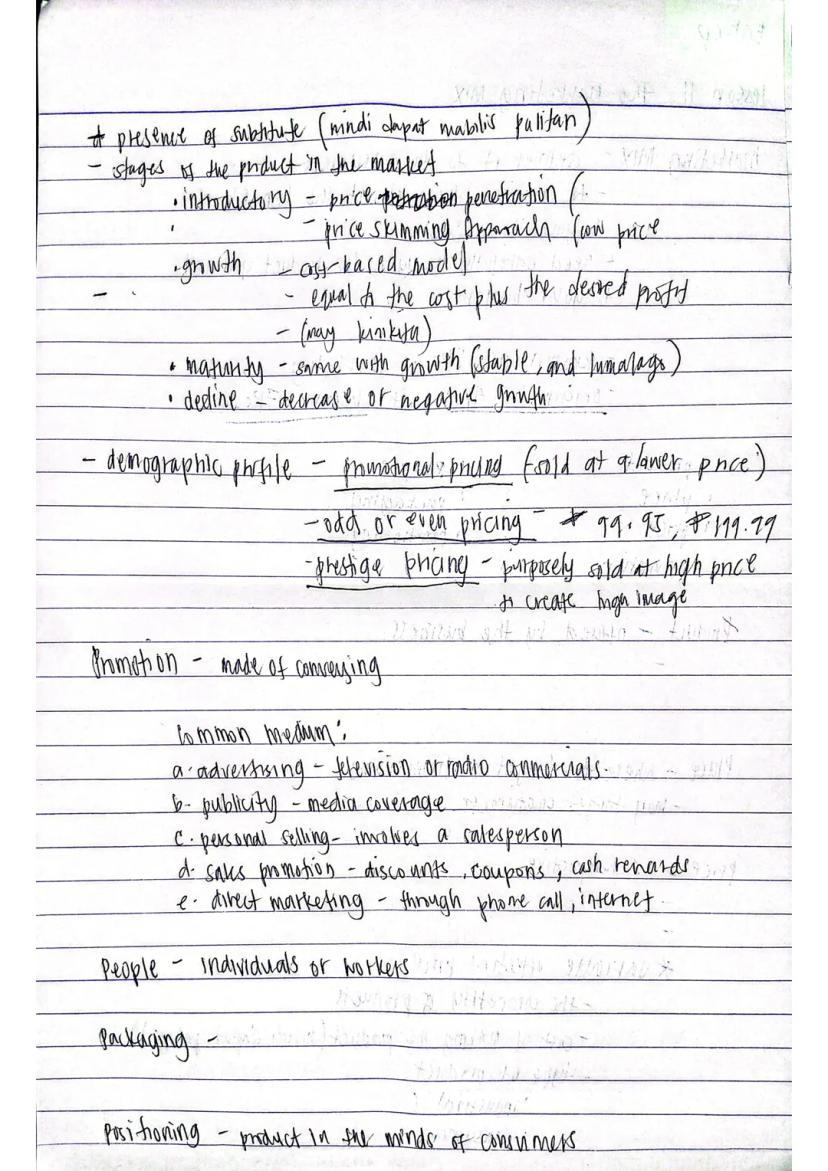 * presence of substitute (hindi dapat mabilis palitan)
- stages of the product in the market
• introductory - price penetration (
• - price skimming Approach (low price
• growth - cost-based model
- - equal to the cost plus the desired profit
- (may kinikita)
• maturity - same with growth (stable, and lumalago)
• decline - decrease or negative growth
- demographic profile - promotional pricing (sold at a lower price)
- odd or even pricing - ₱ 99.95, ₱199.99
- prestige pricing - purposely sold at high price
to create high image
Promotion - made of conveying
Common medium:
a. advertising - television or radio commercials.
b. publicity - media coverage
c. personal selling - involves a salesperson
d. sales promotion - discounts, coupons, cash rewards
e. direct marketing - through phone call, internet
People - individuals or workers
Packaging -
Positioning - product in the minds of consumers